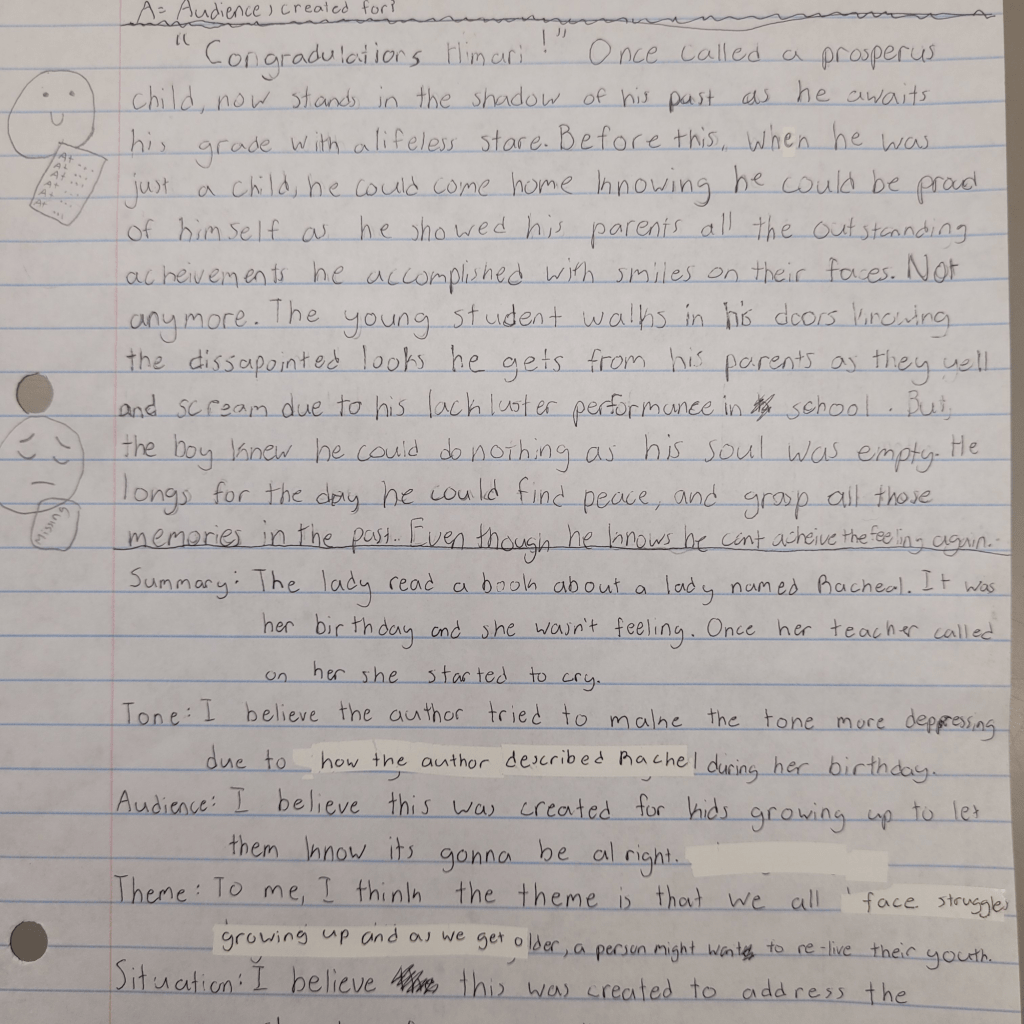 A= Audience, created for?
"Congradulations Himari!" Once called a prosperus
child, now stands in the shadow of his past as he awaits
his grade with a lifeless stare. Before this, when he was
just a child, he could come home knowing he could be proud
of himself as he showed his parents all the outstannding
acheivements he accomplished with smiles on their faces. Not
anymore. The young student walks in his doors knowing
the dissapointed looks he gets from his parents as they yell
and scream due to his lackluster performance in school. But,
the boy knew he could do nothing as his soul was empty. He
longs for the day he could find peace, and grasp all those
memories in the past. Even though he knows he cant acheive the feeling again.
Missing
Summary: The lady read a book about a lady named Racheal. It was
her birthday and she wasn't feeling. Once her teacher called
on her she started to cry.
Tone: I believe the author tried to make the tone more deppressing
due to how the author described Rachel during her birthday.
Audience: I believe this was created for kids growing up to let
them know its gonna be alright.
Theme: To me, I think the theme is that we all face struggles
growing up and as we get older, a person might want to re-live their youth.
Situation: I believe this was created to address the